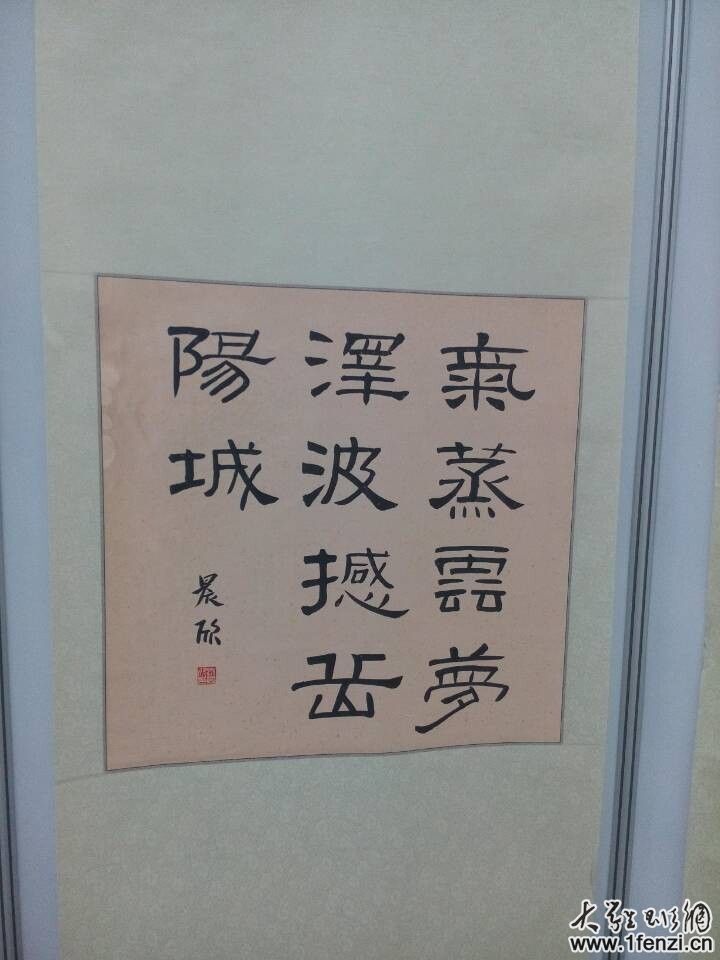 氣蒸雲夢
澤波撼岳
陽城
晨欣
www.1fenzi.cn